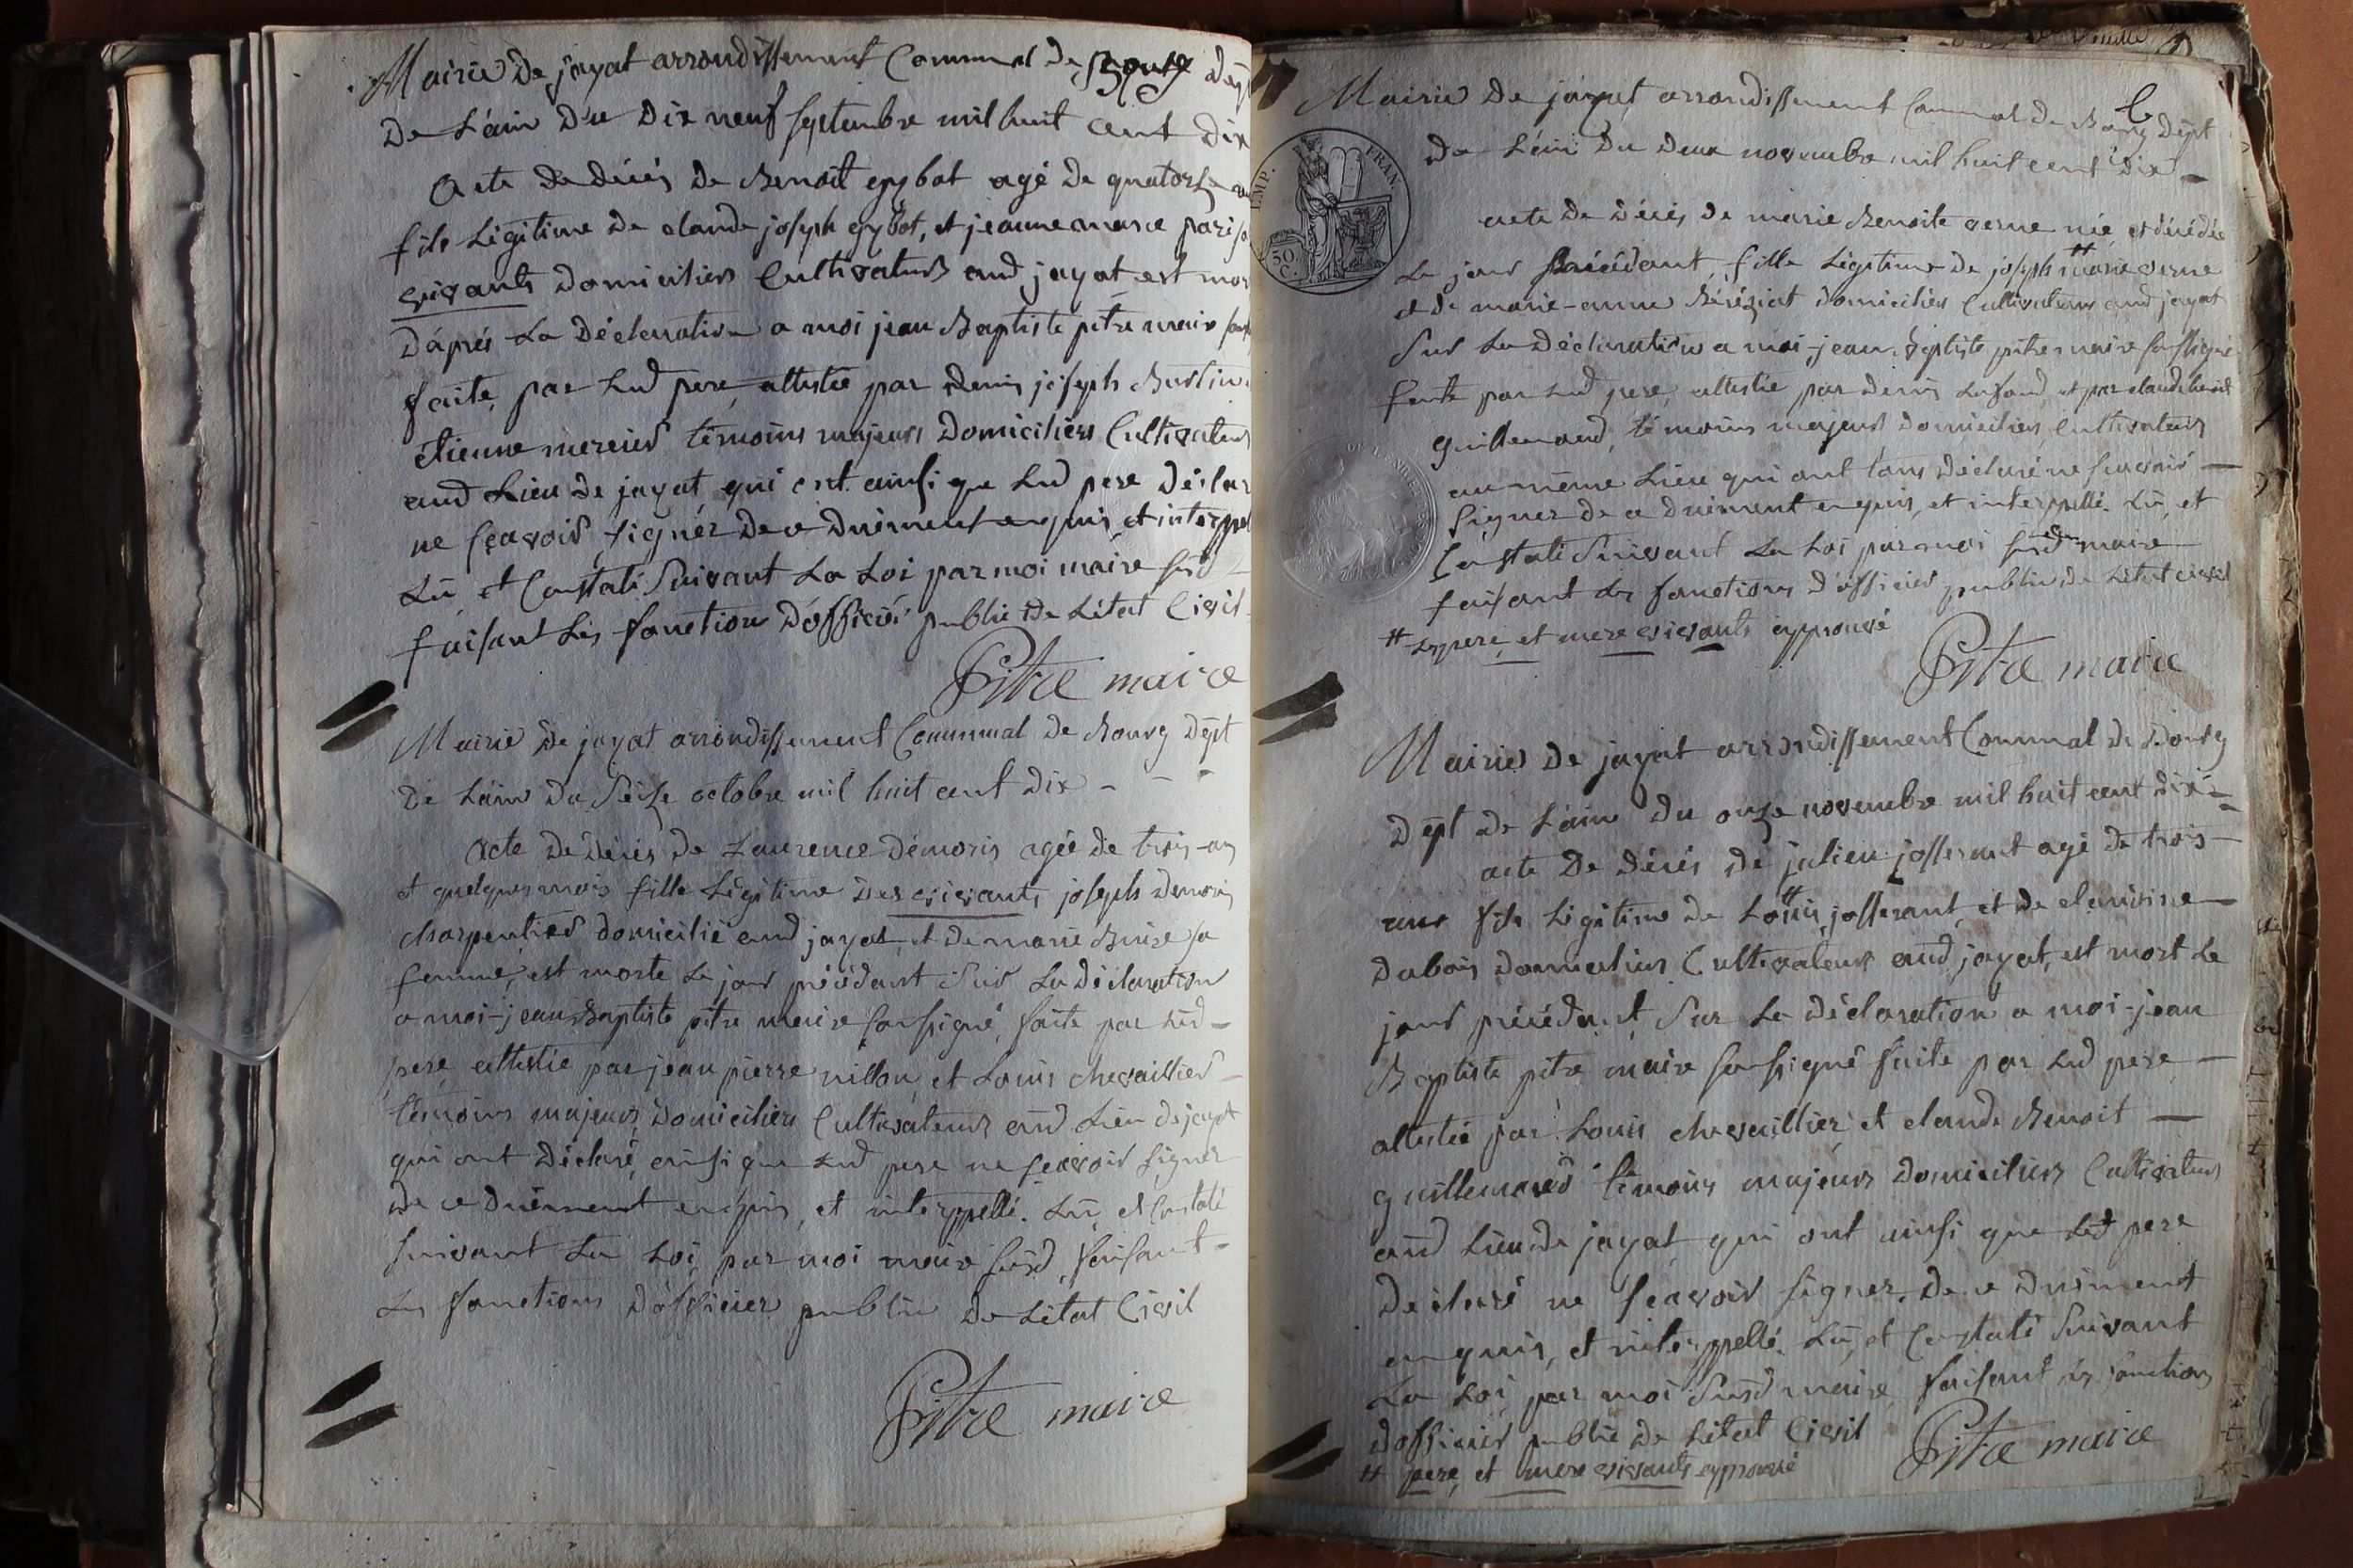 Mairie De jayat arrondissement Communal de Bourg dept
De L'ain Du Dix neuf septembre mil huit cent Dix
Acte de décés de Benoit gybot agé de quatorze
fils Légitime de claude joseph gybot, et jeanne marie
vivants Domiciliés Cultivateurs aud jayat est mort
D'aprés La Déclaration a moi jean Baptiste pitre maire
faite par Lud pere attestée par Denis joseph
etienne mercier témoins majeurs Domiciliés Cultivateurs
aud Lieu de jayat qui ont ainsi que Lud pere Déclar
ne sçavoir signer de ce Duement enquis et interppel
Lû et Constaté Suivant La Loi par moi maire susd
faisant Les fonction D'officier public De L'état Civil
Pitre maire
Mairie De jayat arrondissement Communal De Bourg Dept
De L'ain Du Seize octobre mil huit cent Dix -
Acte De Décés De Laurence Démoris agée de trois ans
et quelques mois fille Légitime Des vivants joseph Demoris
charpentier domicilié aud jayat et de marie Buire sa
femme, est morte Le jour précédant Sur La Déclaration
a moi jean Baptiste pitre maire soussigné, faite par Lud
pere attestée par jean pierre nillon et Louis chevaillier
témoins majeurs Domiciliés Cultivateurs aud Lieu de jayat
qui ont Déclaré ainsi que Lud pere ne sçavoir signer
De ce Duement enquis, et interppellé. Lû et Constaté
suivant La Loi par moi maire susd faisant -
Les fonctions D'officier public De L'état Civil
Pitre maire
Mairie De jayat arrondissement Communal De Bourg Dept
De L'ain Du Deux novembre mil huit cent Dix -
EMP. FRAN.
50. C.
acte De Décés De marie Benoite verne née et décédée
Le jour précédant, fille Légitime de joseph marie verne
et de marie-anne Béréziat Domiciliés Cultivateurs aud jayat
Sur La Déclaration a moi jean Baptiste pitre maire soussigné
faite par Lud pere, attestée par Denis et par claude benoit
guillemaud, témoins majeurs Domiciliés Cultivateurs
au même Lieu qui ont tous Déclaré ne sçavoir -
signer de ce Duement enquis, et interppellé. Lû, et
Constaté Suivant La Loi par moi susd maire
faisant Les fonctions D'officier public de L'état civil
# pere et mere vivants approuvé
Pitre maire
Mairie De jayat arrondissement Communal De Bourg
Dept De L'ain Du onze novembre mil huit cent Dix -
acte De Décés De julien josserant agé De trois -
ans fils Légitime De Louis josserant et de claudine
Dubois Domiciliés Cultivateurs aud jayat, est mort Le
jour précédant Sur La Déclaration a moi jean
Baptiste pitre maire soussigné faite par Lud pere -
attestée par Louis chevaillier et claude Benoit -
guillemaud témoins majeurs Domiciliés Cultivateurs
aud Lieu de jayat qui ont ainsi que Led pere
Declaré ne sçavoir signer De ce Duement
enquis, et interppellé. Lû, et Constaté Suivant
La Loi par moi Susd maire faisant Les fonctions
D'officier public De L'état Civil
Pitre maire
# pere, et mere vivants approuvé